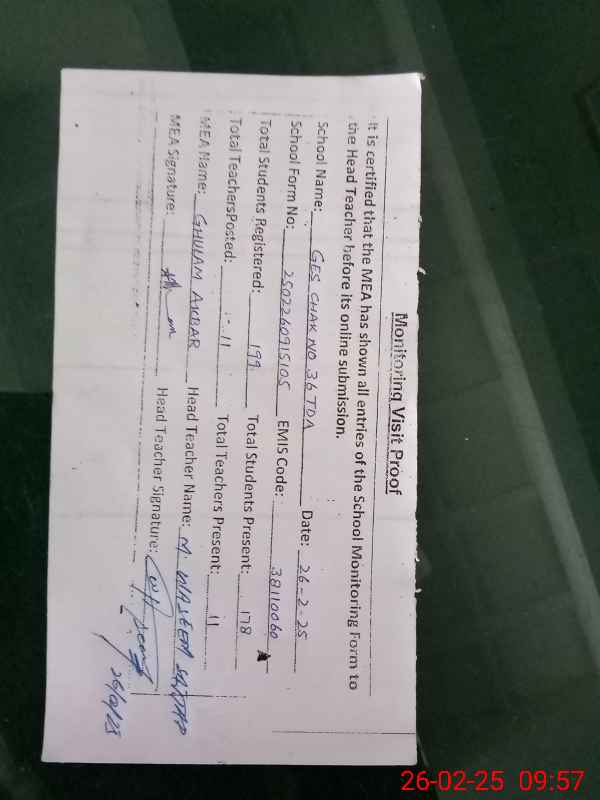 Monitoring Visit Proof
It is certified that the MEA has shown all entries of the School Monitoring Form to
the Head Teacher before its online submission.
School Name: GES CHAK NO 36 TDA Date: 26-2-25
School Form No: 250226091510S EMIS Code: 38110060
Total Students Registered: 199 Total Students Present: 178
Total TeachersPosted: 11 Total Teachers Present: 11
MEA Name: GHULAM AKBAR Head Teacher Name: M. WASEEM SATTAR
MEA Signature: Head Teacher Signature:
26-02-25 09:57